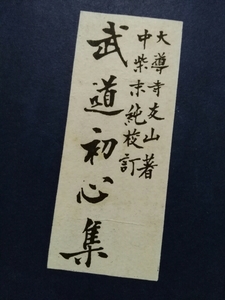 大導寺友山著
中柴末純校訂
武道初心集